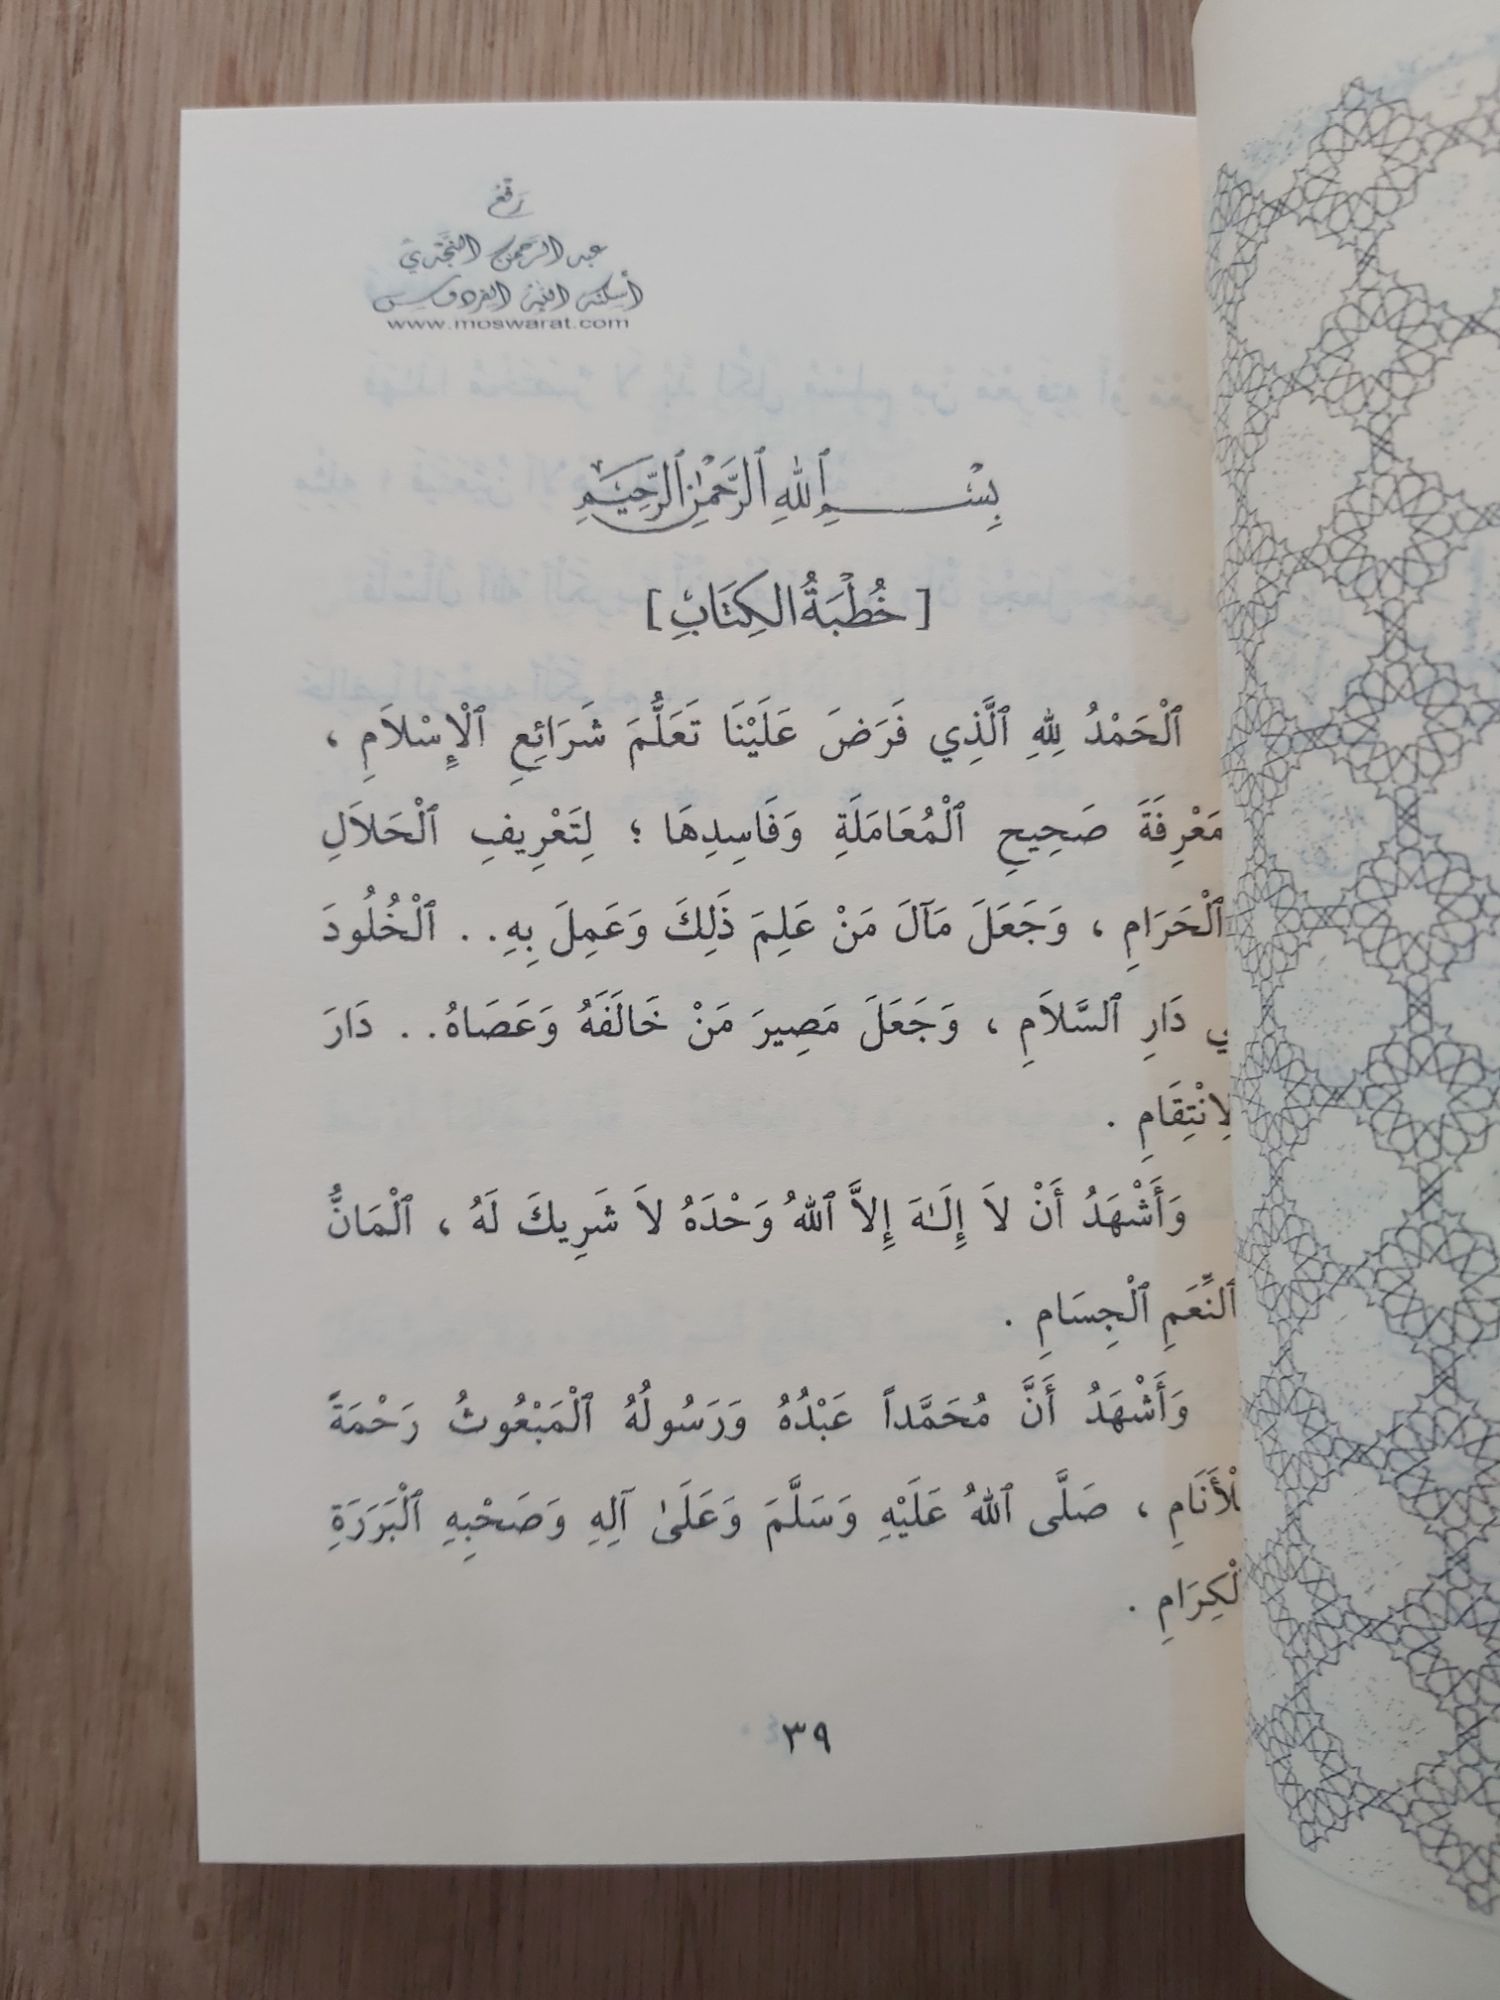 رَفْعُ
عبد الرحمن النجدي
أسكنه الله الفردوس
www.moswarat.com
بِسْمِ ٱللهِ ٱلرَّحْمَٰنِ ٱلرَّحِيمِ
[خُطْبَةُ الكِتَابِ]
ٱلْحَمْدُ لِلهِ ٱلَّذِي فَرَضَ عَلَيْنَا تَعَلُّمَ شَرَائِعِ ٱلْإِسْلاَمِ ،
مَعْرِفَةَ صَحِيحِ ٱلْمُعَامَلَةِ وَفَاسِدِهَا ؛ لِتَعْرِيفِ ٱلْحَلاَلِ
ٱلْحَرَامِ ، وَجَعَلَ مَآلَ مَنْ عَلِمَ ذَلِكَ وَعَمِلَ بِهِ. . ٱلْخُلُودَ
ي دَارِ ٱلسَّلاَمِ ، وَجَعَلَ مَصِيرَ مَنْ خَالَفَهُ وَعَصَاهُ. . دَارَ
لِانْتِقَامِ .
وَأَشْهَدُ أَنْ لاَ إِلَـٰهَ إِلاَّ ٱللهُ وَحْدَهُ لاَ شَرِيكَ لَهُ ، ٱلْمَانُّ
ٱلنِّعَمِ ٱلْجِسَامِ .
وَأَشْهَدُ أَنَّ مُحَمَّداً عَبْدُهُ وَرَسُولُهُ ٱلْمَبْعُوثُ رَحْمَةً
لْأَنَامِ ، صَلَّى ٱللهُ عَلَيْهِ وَسَلَّمَ وَعَلَىٰ آلِهِ وَصَحْبِهِ ٱلْبَرَرَةِ
لْكِرَامِ .
٣٩